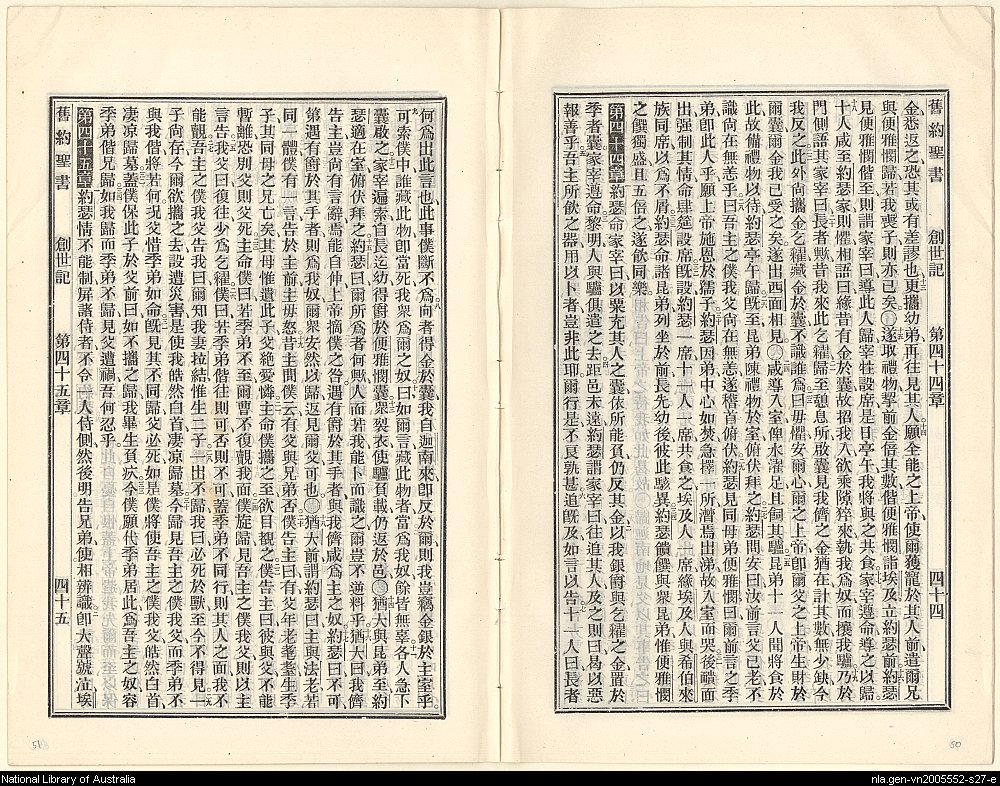 舊約聖書 創世記 第四十四章 四十四
金悉返之恐其或有差謬也更攜幼弟再往見其人願全能之上帝使爾獲寵於其人前遣爾兄
與便雅憫歸若我喪子則亦已矣遂取禮物挈前金倍其數偕便雅憫詣埃及立約瑟前約瑟
見便雅憫偕至則謂家宰曰導此人歸宰牲設席是日亭午我將與之共食家宰遵命導之以歸
十人咸至約瑟家則懼相語曰緣昔有金於囊故招我入欲乘隙猝來執我為奴而攘我驢乃於
門側語其家宰曰長者歟昔我來此乞糴歸至憩息所啟囊見我儕之金猶在計其數無少缺今
我反之此外尚攜金乞糴藏金於囊不識誰為曰毋懼安爾心爾之上帝即爾父之上帝生財於
爾囊爾金我已受之矣遂出西面相見咸導入室俾水濯足且飼其驢昆弟十一人聞將食於
此故備禮物以待約瑟亭午歸既至昆弟陳禮物於室俯伏拜之約瑟問安曰汝前言父已老不
識尚在無恙乎曰吾主之僕我父尚在無恙遂稽首俯伏約瑟見同母弟便雅憫曰爾前言之季
弟即此人乎願上帝施恩於孺子約瑟因弟中心如焚急擇一所潸焉出涕故入室而哭後靧面
出强制其情命肆筵設席既設約瑟一席十一人一席共食之埃及人一席緣埃及人與希伯來
族同席以為不屑約瑟命諸昆弟列坐於前長先幼後彼此駭異約瑟饋饌與眾昆弟惟便雅憫
之饌獨盛且五倍之遂飲同樂
第四十四章約瑟命家宰曰以粟充其人之囊依所能負仍反其金以我銀爵與乞糴之金置於
季者囊家宰遵命黎明人與驢俱遣之去距邑未遠約瑟謂家宰曰往追其人及之則曰曷以惡
報善乎吾主所飲之器用以卜者豈非此耶爾行是不良孰甚追既及如言以告十一人曰長者
50
何為出此言也此事僕斷不為向者得金於囊我自迦南來即反於爾則我豈竊金銀於主室乎
可索僕中誰藏此物即當死我眾為爾之奴曰如爾言藏此物者當為我奴餘皆無辜各人急下
囊啟之家宰遍索自長迄幼得爵於便雅憫囊眾裂衣使驢負載仍返於邑猶大與昆弟至約
瑟適在室俯伏拜之約瑟曰爾所為者何歟人而若我能卜而識之爾豈不逆料乎猶大曰我儕
告主豈尚有言辭焉能自伸上帝摘僕之咎遇有爵於其手者與我儕咸為主之奴約瑟曰不可
第遇有爵於其手者則為我奴爾眾安然以歸返見爾父可也猶大前謂約瑟曰主與法老若
同一體僕有一言告於主前主毋怒昔主問僕云有父與兄弟否僕告主曰有父年老耄耋生季
子其同母之兄亡矣其母惟遺此子父絕愛憐主命僕攜之至欲目睹之僕告主曰彼與父不能
暫離恐別父則父死主命僕曰若季弟不至爾曹不復覿我面僕旋歸見吾主之僕我父則以主
言告我父曰復往少為乞糴僕曰若季弟偕往則可否則不可蓋季弟不同行則其人之面我不
能覿吾主之僕我父告我曰爾知我妻拉結惟生二子一出不歸我曰必死於獸至今不得見一
子尚存今爾欲攜之去設遭災害是使我皓然白首凄凉歸墓今歸見吾主之僕我父而季弟不
與我偕將若何況父惜季弟如命既見其不同歸父必死如是僕將使吾主之僕我父皓然白首
凄凉歸墓蓋僕保此子於父前曰如不攜之歸我畢生負疚今僕願代季弟居此為吾主之奴容
季弟偕兄歸如我歸而季弟不歸見父遭禍吾何忍乎
第四十五章約瑟情不能制屏諸侍者不令一人侍側然後明告兄弟使相辨識即大聲號泣埃
舊約聖書 創世記 第四十五章 四十五
51
National Library of Australia
nla.gen-vn2005552-s27-e